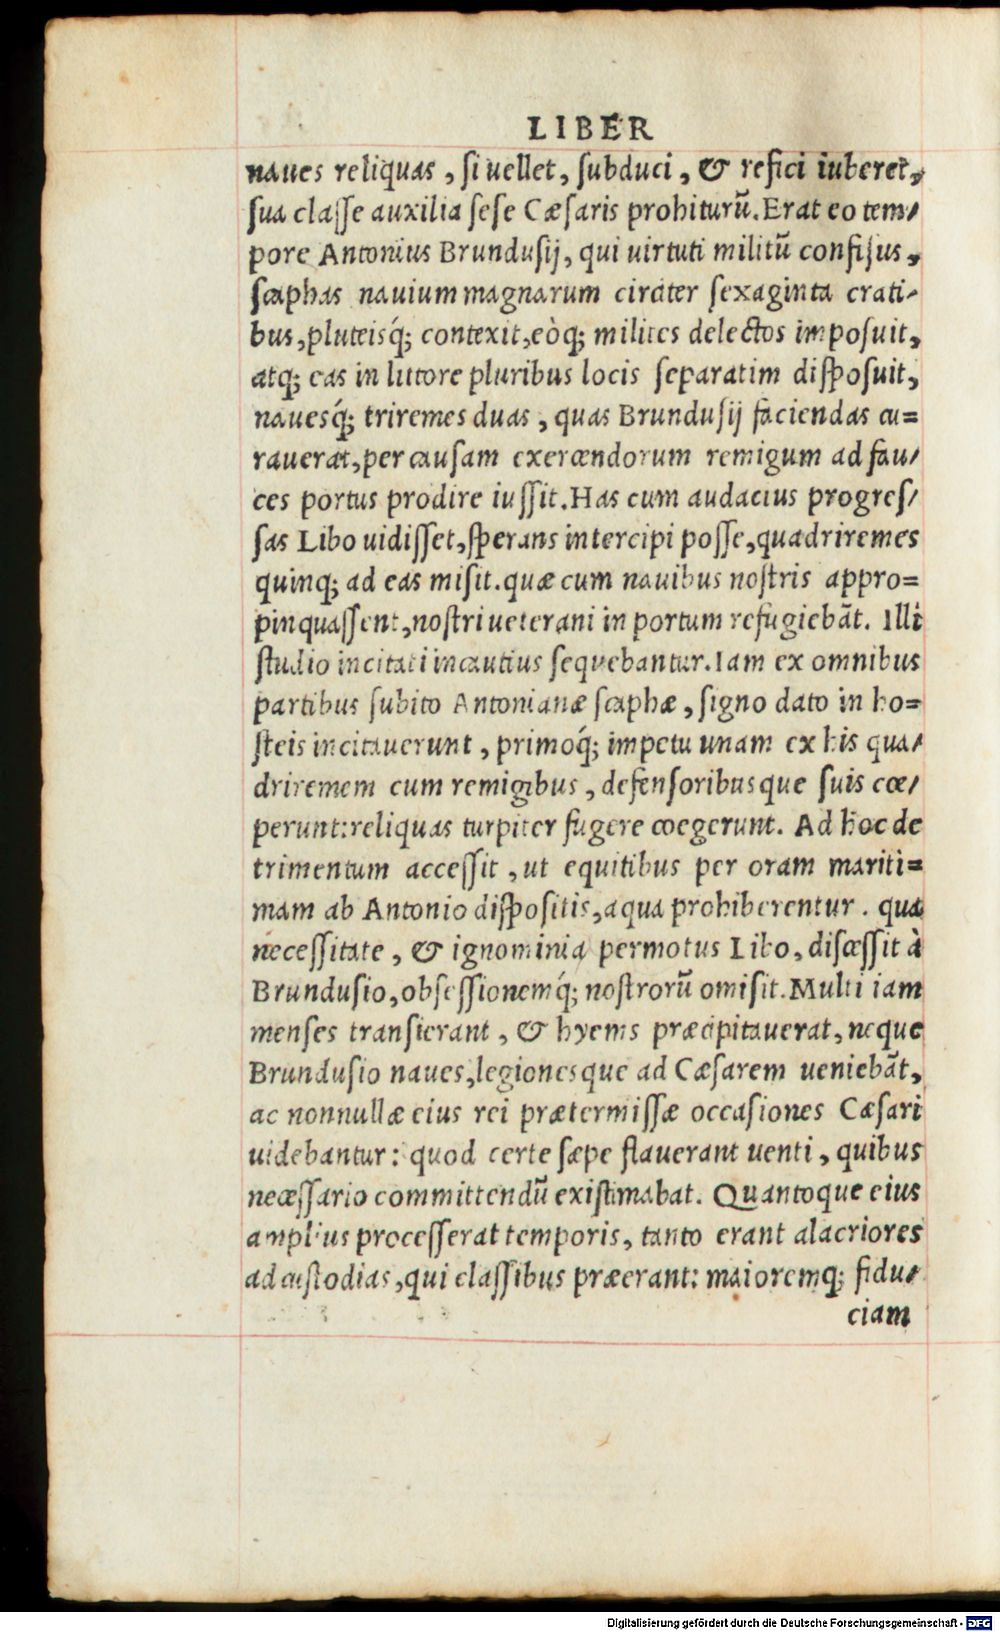 LIBER
naues reliquas, si uellet, subduci, & refici iuberet,
sua classe auxilia sese Cæsaris prohiturũ. Erat eo tem/
pore Antonius Brundusij, qui uirtuti militũ confisus,
scaphas nauium magnarum circiter sexaginta crati/
bus, pluteisq́; contexit, eòq́; milites delectos imposuit,
atq; eas in littore pluribus locis separatim disposuit,
nauesq́; triremes duas, quas Brundusij faciendas cu=
rauerat, per causam exercendorum remigum ad fau/
ces portus prodire iussit. Has cum audacius progres/
sas Libo uidisset, sperans intercipi posse, quadriremes
quinq; ad eas misit. quæ cum nauibus nostris appro=
pinquassent, nostri ueterani in portum refugiebãt. Illi
studio incitati incautius sequebantur. Iam ex omnibus
partibus subito Antonianæ scaphæ, signo dato in ho=
steis incitauerunt, primoq́; impetu unam ex his qua/
driremem cum remigibus, defensoribusque suis cœ/
perunt: reliquas turpiter fugere coegerunt. Ad hoc de
trimentum accessit, ut equitibus per oram mariti=
mam ab Antonio dispositis, aqua prohiberentur. qua
necessitate, & ignominia permotus Libo, discessit à
Brundusio, obsessionemq́; nostrorũ omisit. Multi iam
menses transierant, & hyems præcipitauerat, neque
Brundusio naues, legionesque ad Cæsarem ueniebãt,
ac nonnullæ eius rei prætermissæ occasiones Cæsari
uidebantur: quod certe sæpe flauerant uenti, quibus
necessario committendũ existimabat. Quantoque eius
amplius processerat temporis, tanto erant alacriores
ad custodias, qui classibus præerant: maioremq; fidu/
ciam
Digitalisierung gefördert durch die Deutsche Forschungsgemeinschaft - DFG